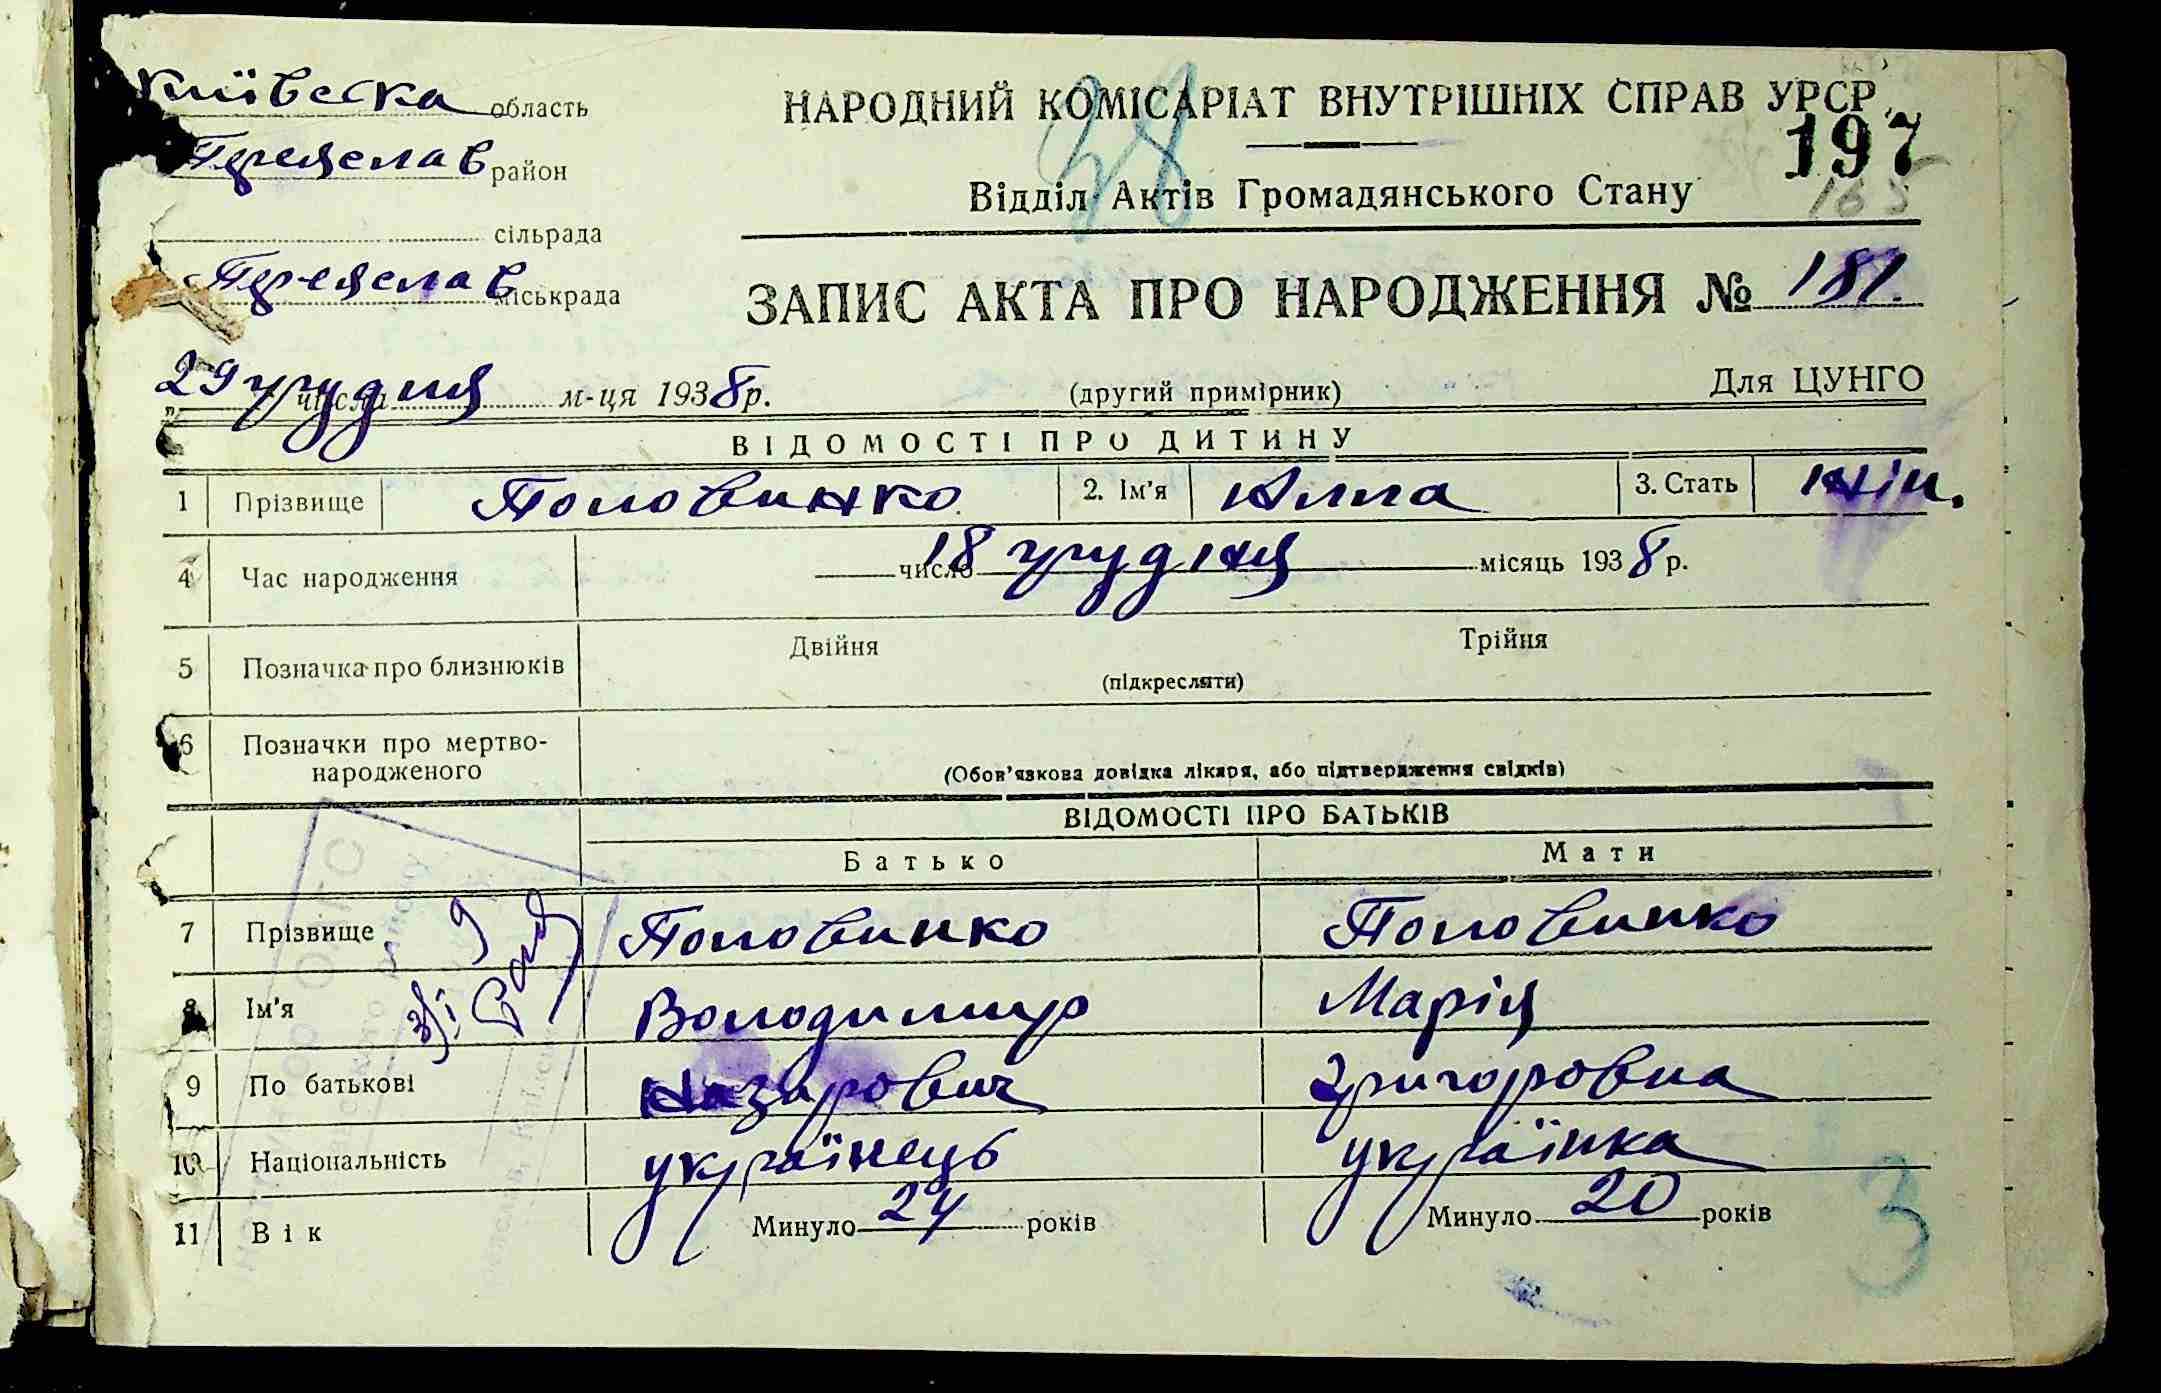 Київська область
НАРОДНИЙ КОМІСАРІАТ ВНУТРІШНІХ СПРАВ УРСР
197
28
165
Переяслав район
Відділ Актів Громадянського Стану
сільрада
Переяслав міськрада
ЗАПИС АКТА ПРО НАРОДЖЕННЯ № 181.
„29 числа грудня м-ця 1938 р.
(другий примірник)
Для ЦУНГО
ВІДОМОСТІ ПРО ДИТИНУ
1 Прізвище Половинко 2. Ім'я Алла 3. Стать жін.
4 Час народження 18 число грудня місяць 1938 р.
5 Позначка про близнюків Двійня Трійня
(підкреслити)
6 Позначки про мертво-
народженого
(Обов'язкова довідка лікаря, або підтвердження свідків)
ВІДОМОСТІ ПРО БАТЬКІВ
Батько Мати
7 Прізвище Половинко Половинко
8 Ім'я Володимир Марія
9 По батькові Назарович Григоровна
10 Національність українець українка
11 Вік Минуло 24 років Минуло 20 років
3